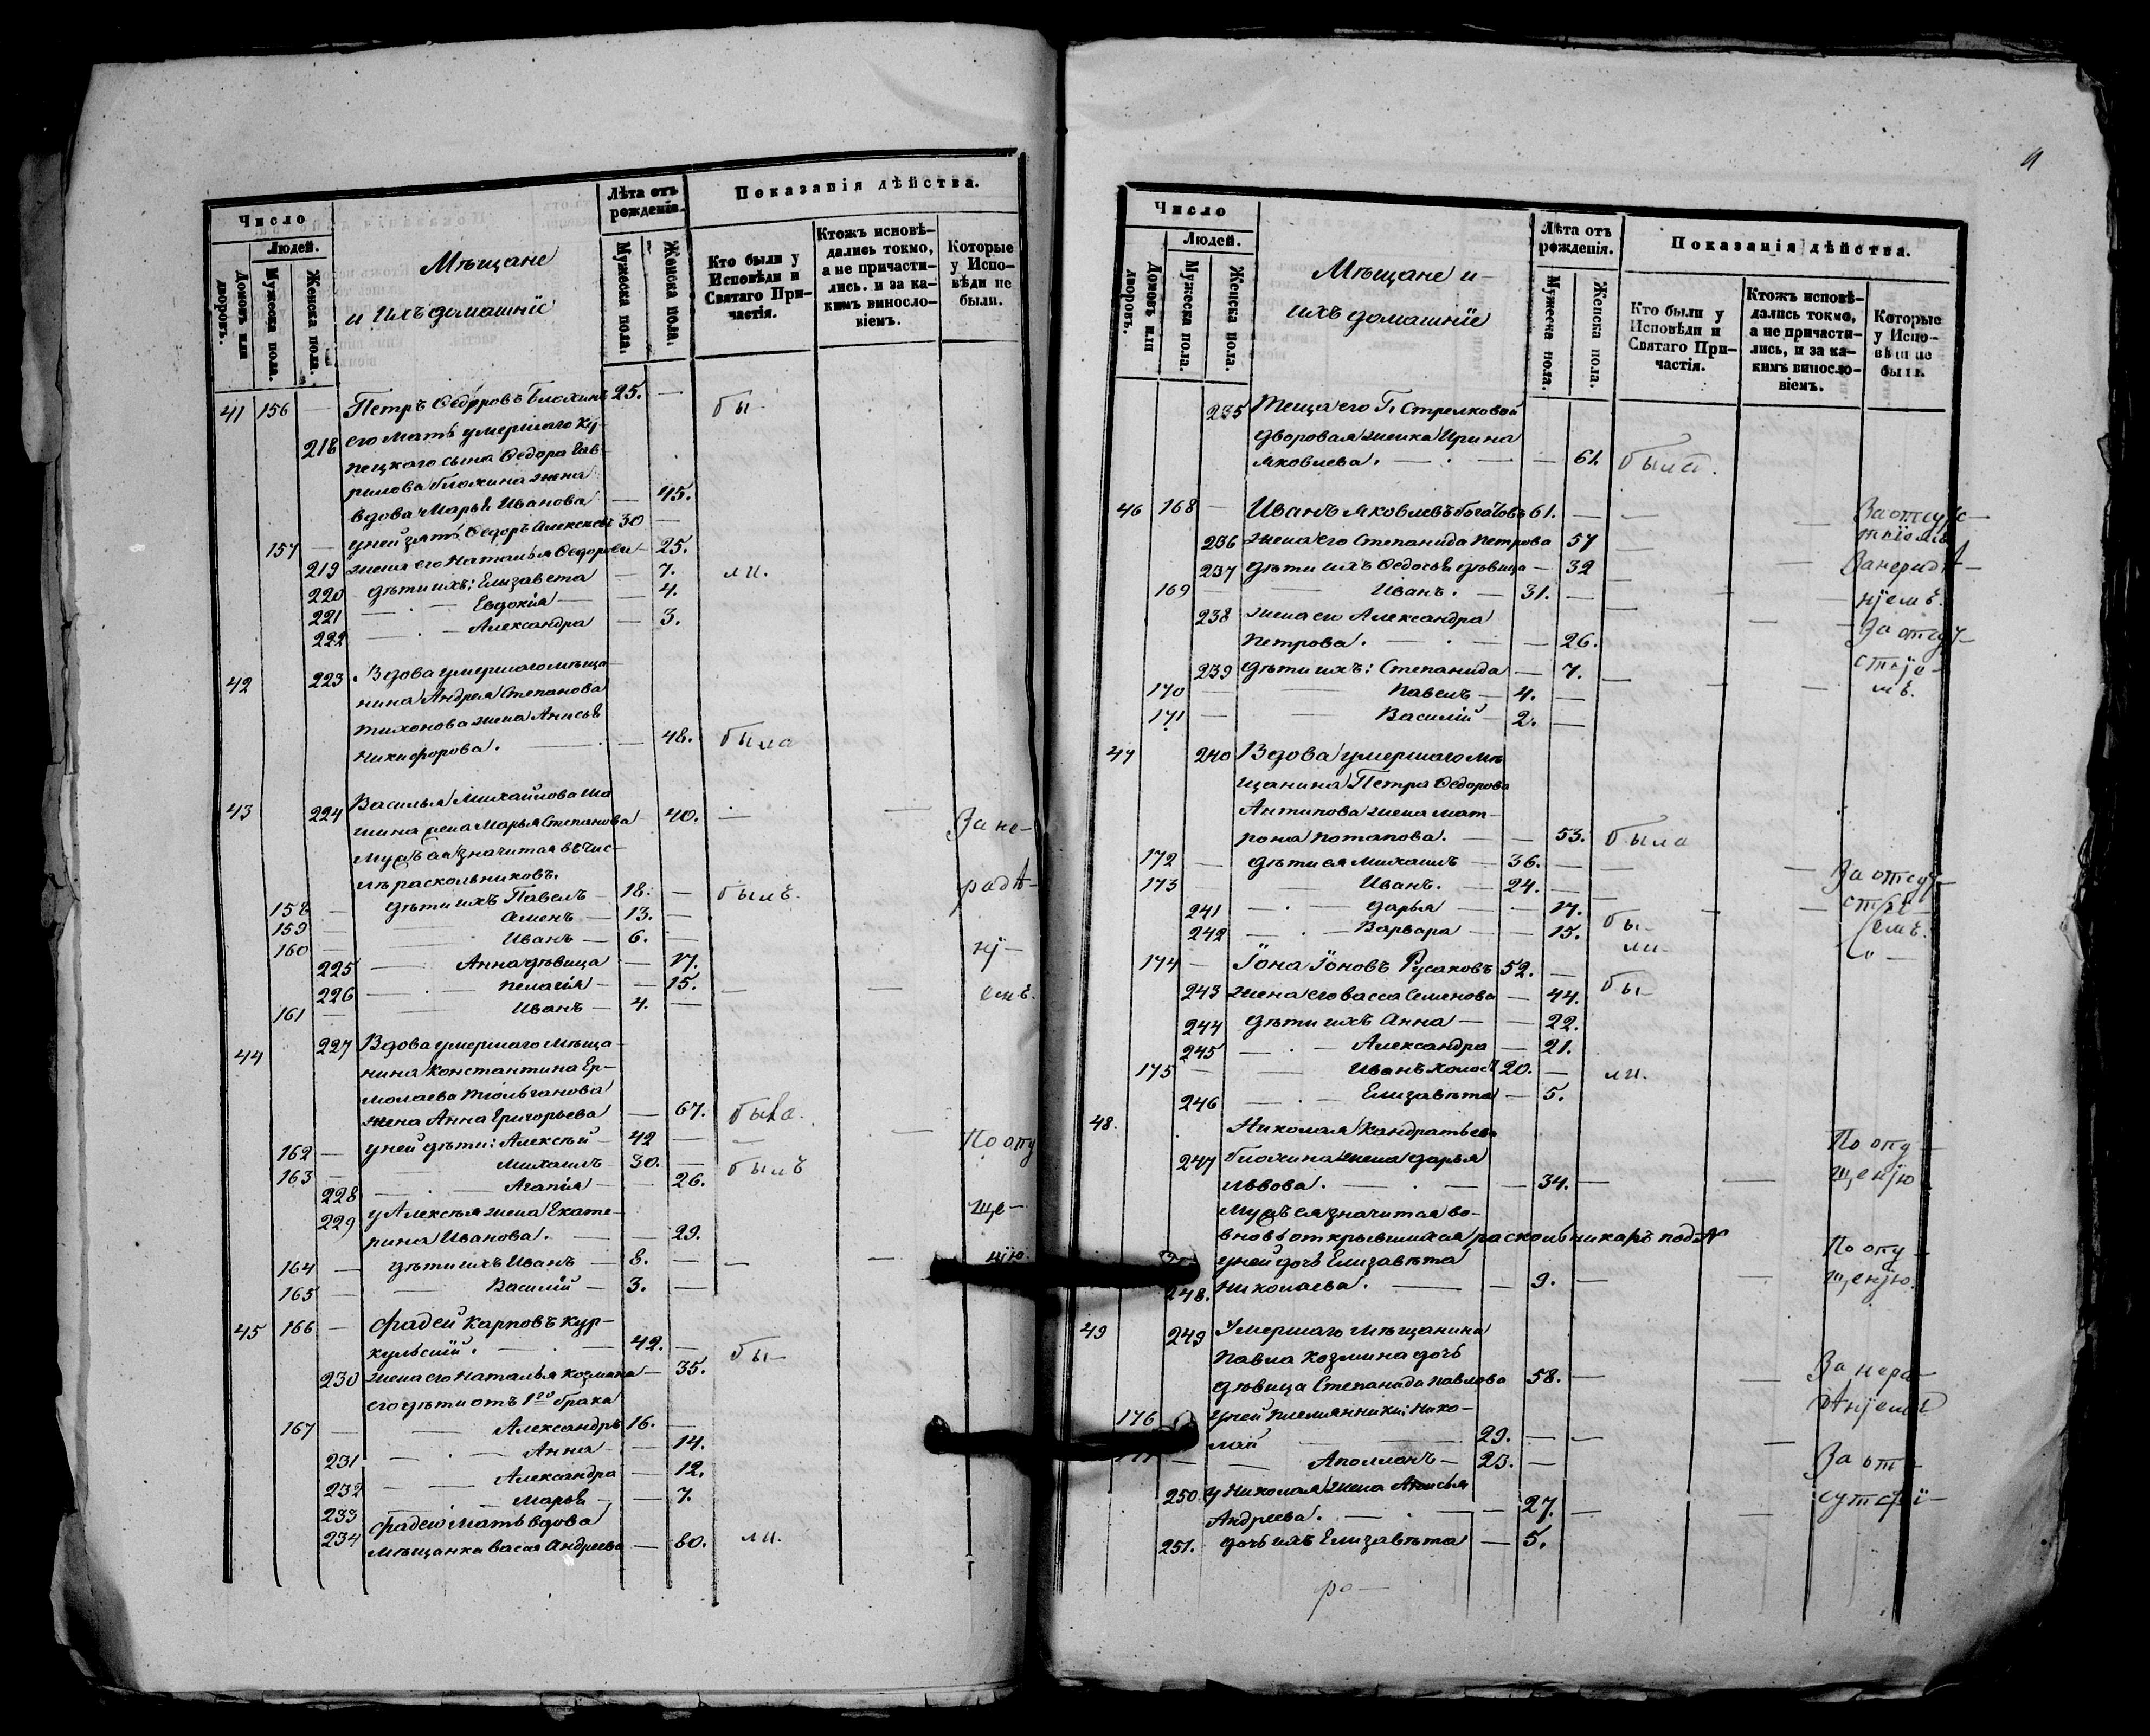 Число
Людей.
Домовъ или дворовъ.
Мужеска пола.
Женска пола.
Мѣщане
и ихъ домашніе
Лѣта отъ рожденія.
Мужеска пола.
Женска пола.
Показанія дѣйства.
Кто были у Исповѣди и Святаго Причастія.
Ктожъ исповѣдались токмо, а не причастились. и за какимъ винословіемъ.
Которые у Исповѣди не были.
41 156 — Петръ Ѳедоровъ Блохинъ 25. — бы-
218 его мать умершаго ку-
пецкаго сына Ѳедора Гав-
рилова Блохина жена
вдова Марья Иванова — 45.
157 — у ней зять Ѳедоръ Алексеевъ 30 —
219 жена его Наталья Ѳедорова — 25.
220 дѣти ихъ: Елизавета — 7. ли.
221 — Евдокія — 4.
222 — Александра — 3.
42 223 Вдова умершаго мѣща-
нина Андрея Степанова
Тихонова жена Анисья
Никифорова. — 48. была
43 224 Василья Михайлова
жена Марья Степанова — 40. — За не-
мужъ ея значится въ чис-
лѣ раскольниковъ.
158 — дѣти ихъ Павелъ — 18. — былъ. радѣ-
159 — — 13. —
160 — Иванъ — 6. — ні-
225 — Анна дѣвица — 17.
226 — Пелагія — 15. — емъ.
161 — Иванъ — 4. —
44 227 Вдова умершаго мѣща-
нина Константина Ер-
молаева
жена Анна Григорьева — 67. была.
162 — у ней дѣти: Алексѣй — 42 — — По опу
163 — Михаилъ — 30. — былъ
228 — Агапія — 26.
229 у Алексѣя жена Екате- ще-
рина Иванова. — 29.
164 — дѣти ихъ Иванъ — 8. — — нію
165 — Василій — 3. —
45 166 — Фадей Карповъ Кур-
кульскій. — 42. — бы-
230 жена его Наталья Козмина — 35.
его дѣти отъ 1го брака
167 — Александръ 16. —
231 — Анна — 14.
232 — Александра — 12.
233 — Марья — 7.
234 Фадею мать вдова
мѣщанка Васса Андреева — 80. ли.
Число
Людей.
Домовъ или дворовъ.
Мужеска пола.
Женска пола.
Мѣщане и-
ихъ домашніе
Лѣта отъ рожденія.
Мужеска пола.
Женска пола.
Показанія дѣйства.
Кто были у Исповѣди и Святаго Причастія.
Ктожъ исповѣдались токмо, а не причастились, и за какимъ винословіемъ.
Которые у Исповѣди не были.
235 Теща его Г. Стрелковой
дворовая женка Ирина
Яковлева. — 61. была.
46 168 — Иванъ Яковлевъ 61. — — За отсут-
ствіемъ
236 жена его Степанида Петрова 57
237 дѣти ихъ Ѳедосья дѣвица — 32 За нерадѣ-
169 — Иванъ. — 31. — ніемъ.
238 жена его Александра За отсут-
Петрова. — 26.
239 дѣти ихъ: Степанида — 7. — ствіе-
170 — Павелъ — 4. — мъ.
171 — Василій — 2. —
47 240 Вдова умершаго мѣ
щанина Петра Ѳедорова
Антипова жена Мат-
рона Потапова. — 53. была
172 — дѣти ея Михаилъ — 36. —
173 — Иванъ. — 24. — За отсут-
241 — Дарья — 17. стві-
242 — Варвара — 15. бы- емъ.
ли-
174 — Іона Іоновъ Русаковъ 52. —
243 жена его Васса Семенова — 44. бы-
244 дѣти ихъ Анна — 22.
245 — Александра — 21.
175 — Иванъ холос. 20. — ли.
246 — Елизавѣта — 5.
48. Николая Кандратьева
247 Блохина жена Дарья По опу-
Львова. — 34. — щенію
Мужъ ея значится во-
вновь открывшихся раскольникахъ подъ №
у ней дочь Елизавѣта По опу-
248. Николаева. — 9. — щенію.
49 249 Умершаго мѣщанина
Павла Козмина дочь
дѣвица Степанида Павлова 58. — За нера-
176 у ней племянники: Нико- дѣніемъ
лай — 29. —
177 — Аполлонъ — 23. — За от-
250 у Николая жена Анисья
Андреева. — 27. — сутстві-
251. дочь ихъ Елизавѣта — 5.